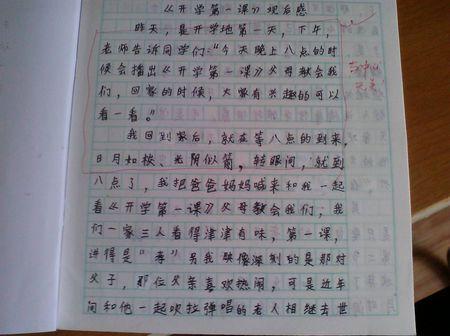 《开学第一课》观后感
昨天,是开学地第一天,下午,
老师告诉同学们:“今天晚上八点的时
候会播出《开学第一课》父母教会我
们,回家的时候,大家有兴趣的可以
看一看。”
我回到家后,就在等八点的到来,
日月如梭、光阴似箭,转眼间,就到
八点了,我把爸爸妈妈喊来和我一起
看《开学第一课》父母教会我们,我
们一家三人看得津津有味,第一课,
讲得是“孝”另我映像深刻的是那对
父子,那位父亲喜欢热闹,可是近年
间和他一起吹拉弹唱的老人相继去世
与中心
无关